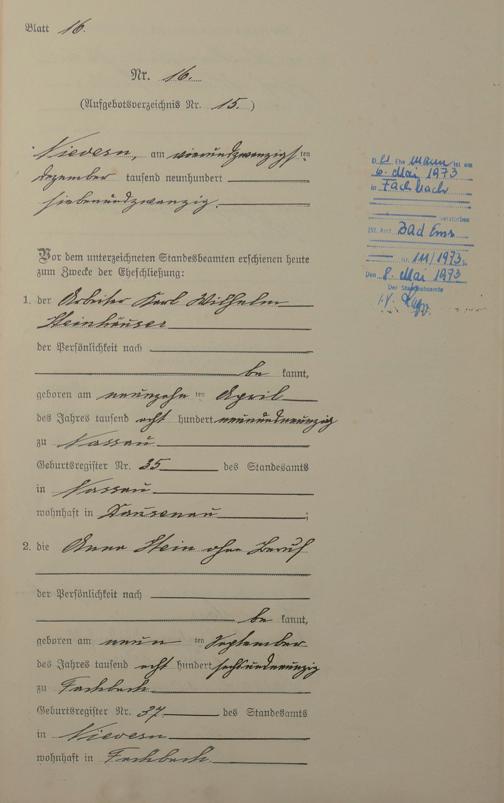 Blatt 16.
Nr. 16.
(Aufgebotsverzeichnis Nr. 15.)
Nievern, am vierundzwanzigsten
Dezember tausend neunhundert
siebenundzwanzig.
Vor dem unterzeichneten Standesbeamten erschienen heute
zum Zwecke der Eheschließung:
1. der Arbeiter Karl Wilhelm
Steinhäuser
der Persönlichkeit nach
be kannt,
geboren am neunzehn ten April
des Jahres tausend acht hundert neunundneunzig
zu Nassau
Geburtsregister Nr. 35 des Standesamts
in Nassau
wohnhaft in Dausenau;
2. die Anna Stein ohne Beruf
der Persönlichkeit nach
be kannt,
geboren am neun ten September
des Jahres tausend acht hundert sechsundneunzig
zu Fachbach
Geburtsregister Nr. 37 des Standesamts
in Nievern
wohnhaft in Fachbach
D. Ehemann ist am
6. Mai 1973
in Fachbach
verstorben
St. Amt Bad Ems
Nr. 111/1973.
Den 8. Mai 1973
Der Standesbeamte
I.V.